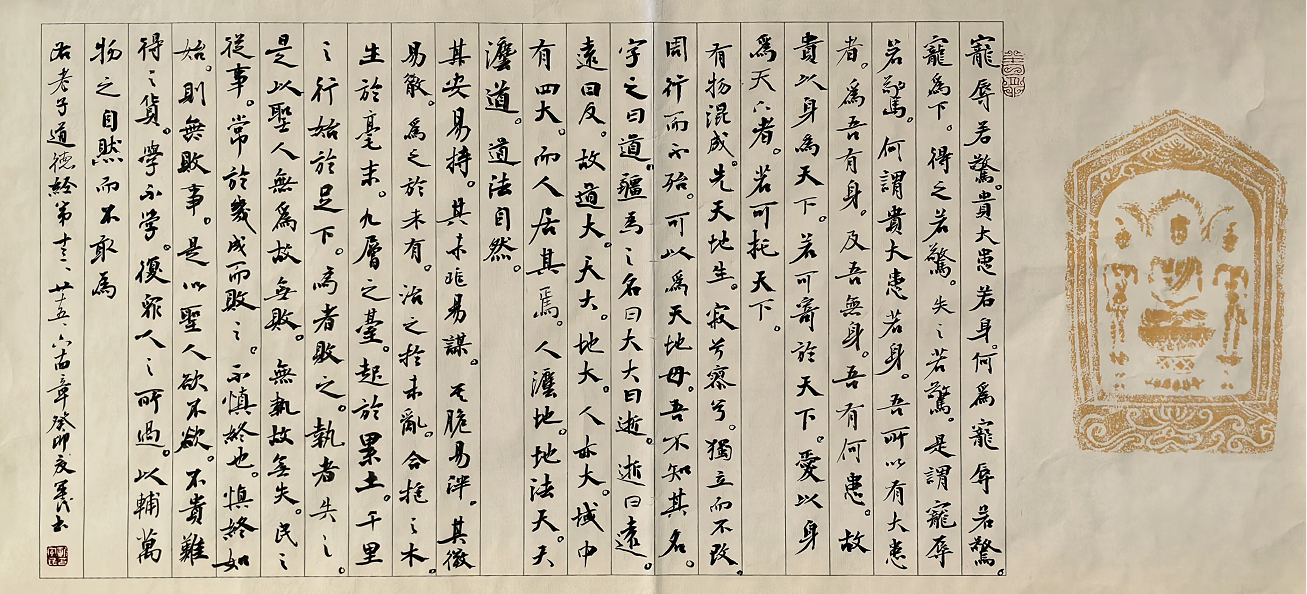 寵辱若驚。貴大患若身。何爲寵辱若驚。
寵爲下。得之若驚。失之若驚。是謂寵辱
若驚。何謂貴大患若身。吾所以有大患
者。爲吾有身。及吾無身。吾有何患。故
貴以身爲天下。若可寄於天下。愛以身
爲天下者。若可托天下。
有物混成。先天地生。寂兮寥兮。獨立而不改。
周行而不殆。可以爲天地母。吾不知其名。
字之曰道。彊爲之名曰大大曰逝。逝曰遠。
遠曰反。故道大。天大。地大。人亦大。域中
有四大。而人居其焉。人灋地。地法天。天
灋道。道法自然。
其安易持。其未兆易謀。其脆易泮。其微
易散。爲之於未有。治之於未亂。合抱之木
生於毫末。九層之臺。起於累土。千里
之行始於足下。爲者敗之。執者失之。
是以聖人無爲故無敗。無執故無失。民之
從事。常於幾成而敗之。不慎終也。慎終如
始。則無敗事。是以聖人欲不欲。不貴難
得之貨。學不學。復衆人之所過。以輔萬
物之自然而不敢爲
右老子道德經第十三、廿五、六古章癸卯夏書